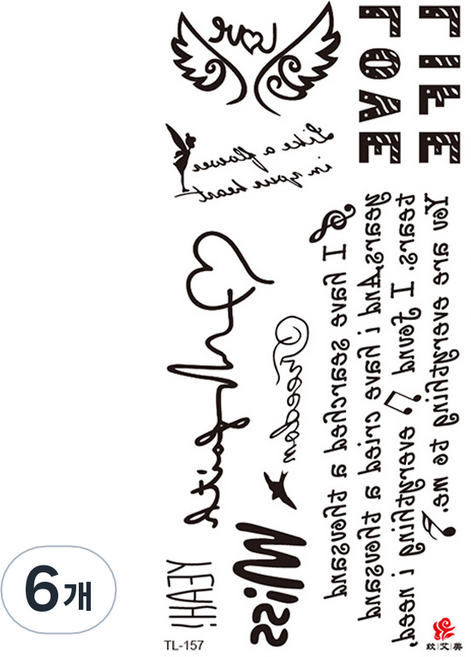 Love
LIFE
LOVE
Like a flower
in your heart
I have searched a thousand
years,And i have cried a thousand
tears. I found everything i need,
You are everything to me.
Faith
Freedom
Miss
YEAH!!
6개
TL-157
纹艾美